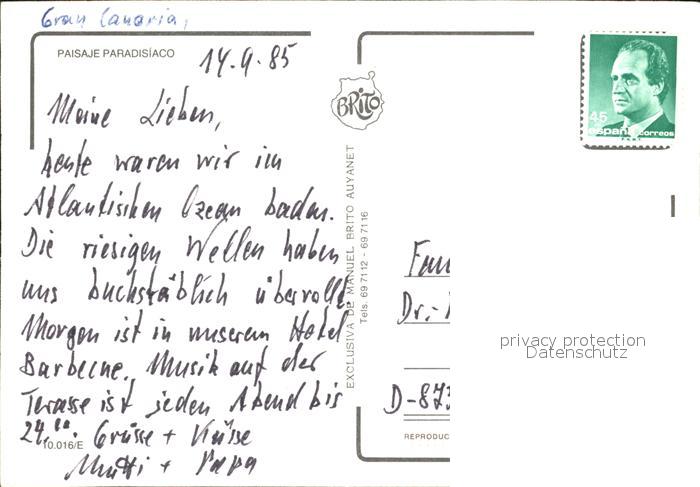 Gran Canaria,
PAISAJE PARADISÍACO
14.9.85
Meine Lieben,
heute waren wir im
Atlantischen Ozean baden.
Die riesigen Wellen haben
uns buchstäblich überrollt.
Morgen ist in unserem Hotel
Barbecue. Musik auf der
Terasse ist jeden Abend bis
24.00 Grüsse + Küsse
10.016/E
Mutti + Papa
BRITO
EXCLUSIVA DE MANUEL BRITO AUYANET
Tels. 69 71 12 - 69 71 16
45
españa correos
Fam
Dr.-
D-873
REPRODUC
privacy protection
Datenschutz